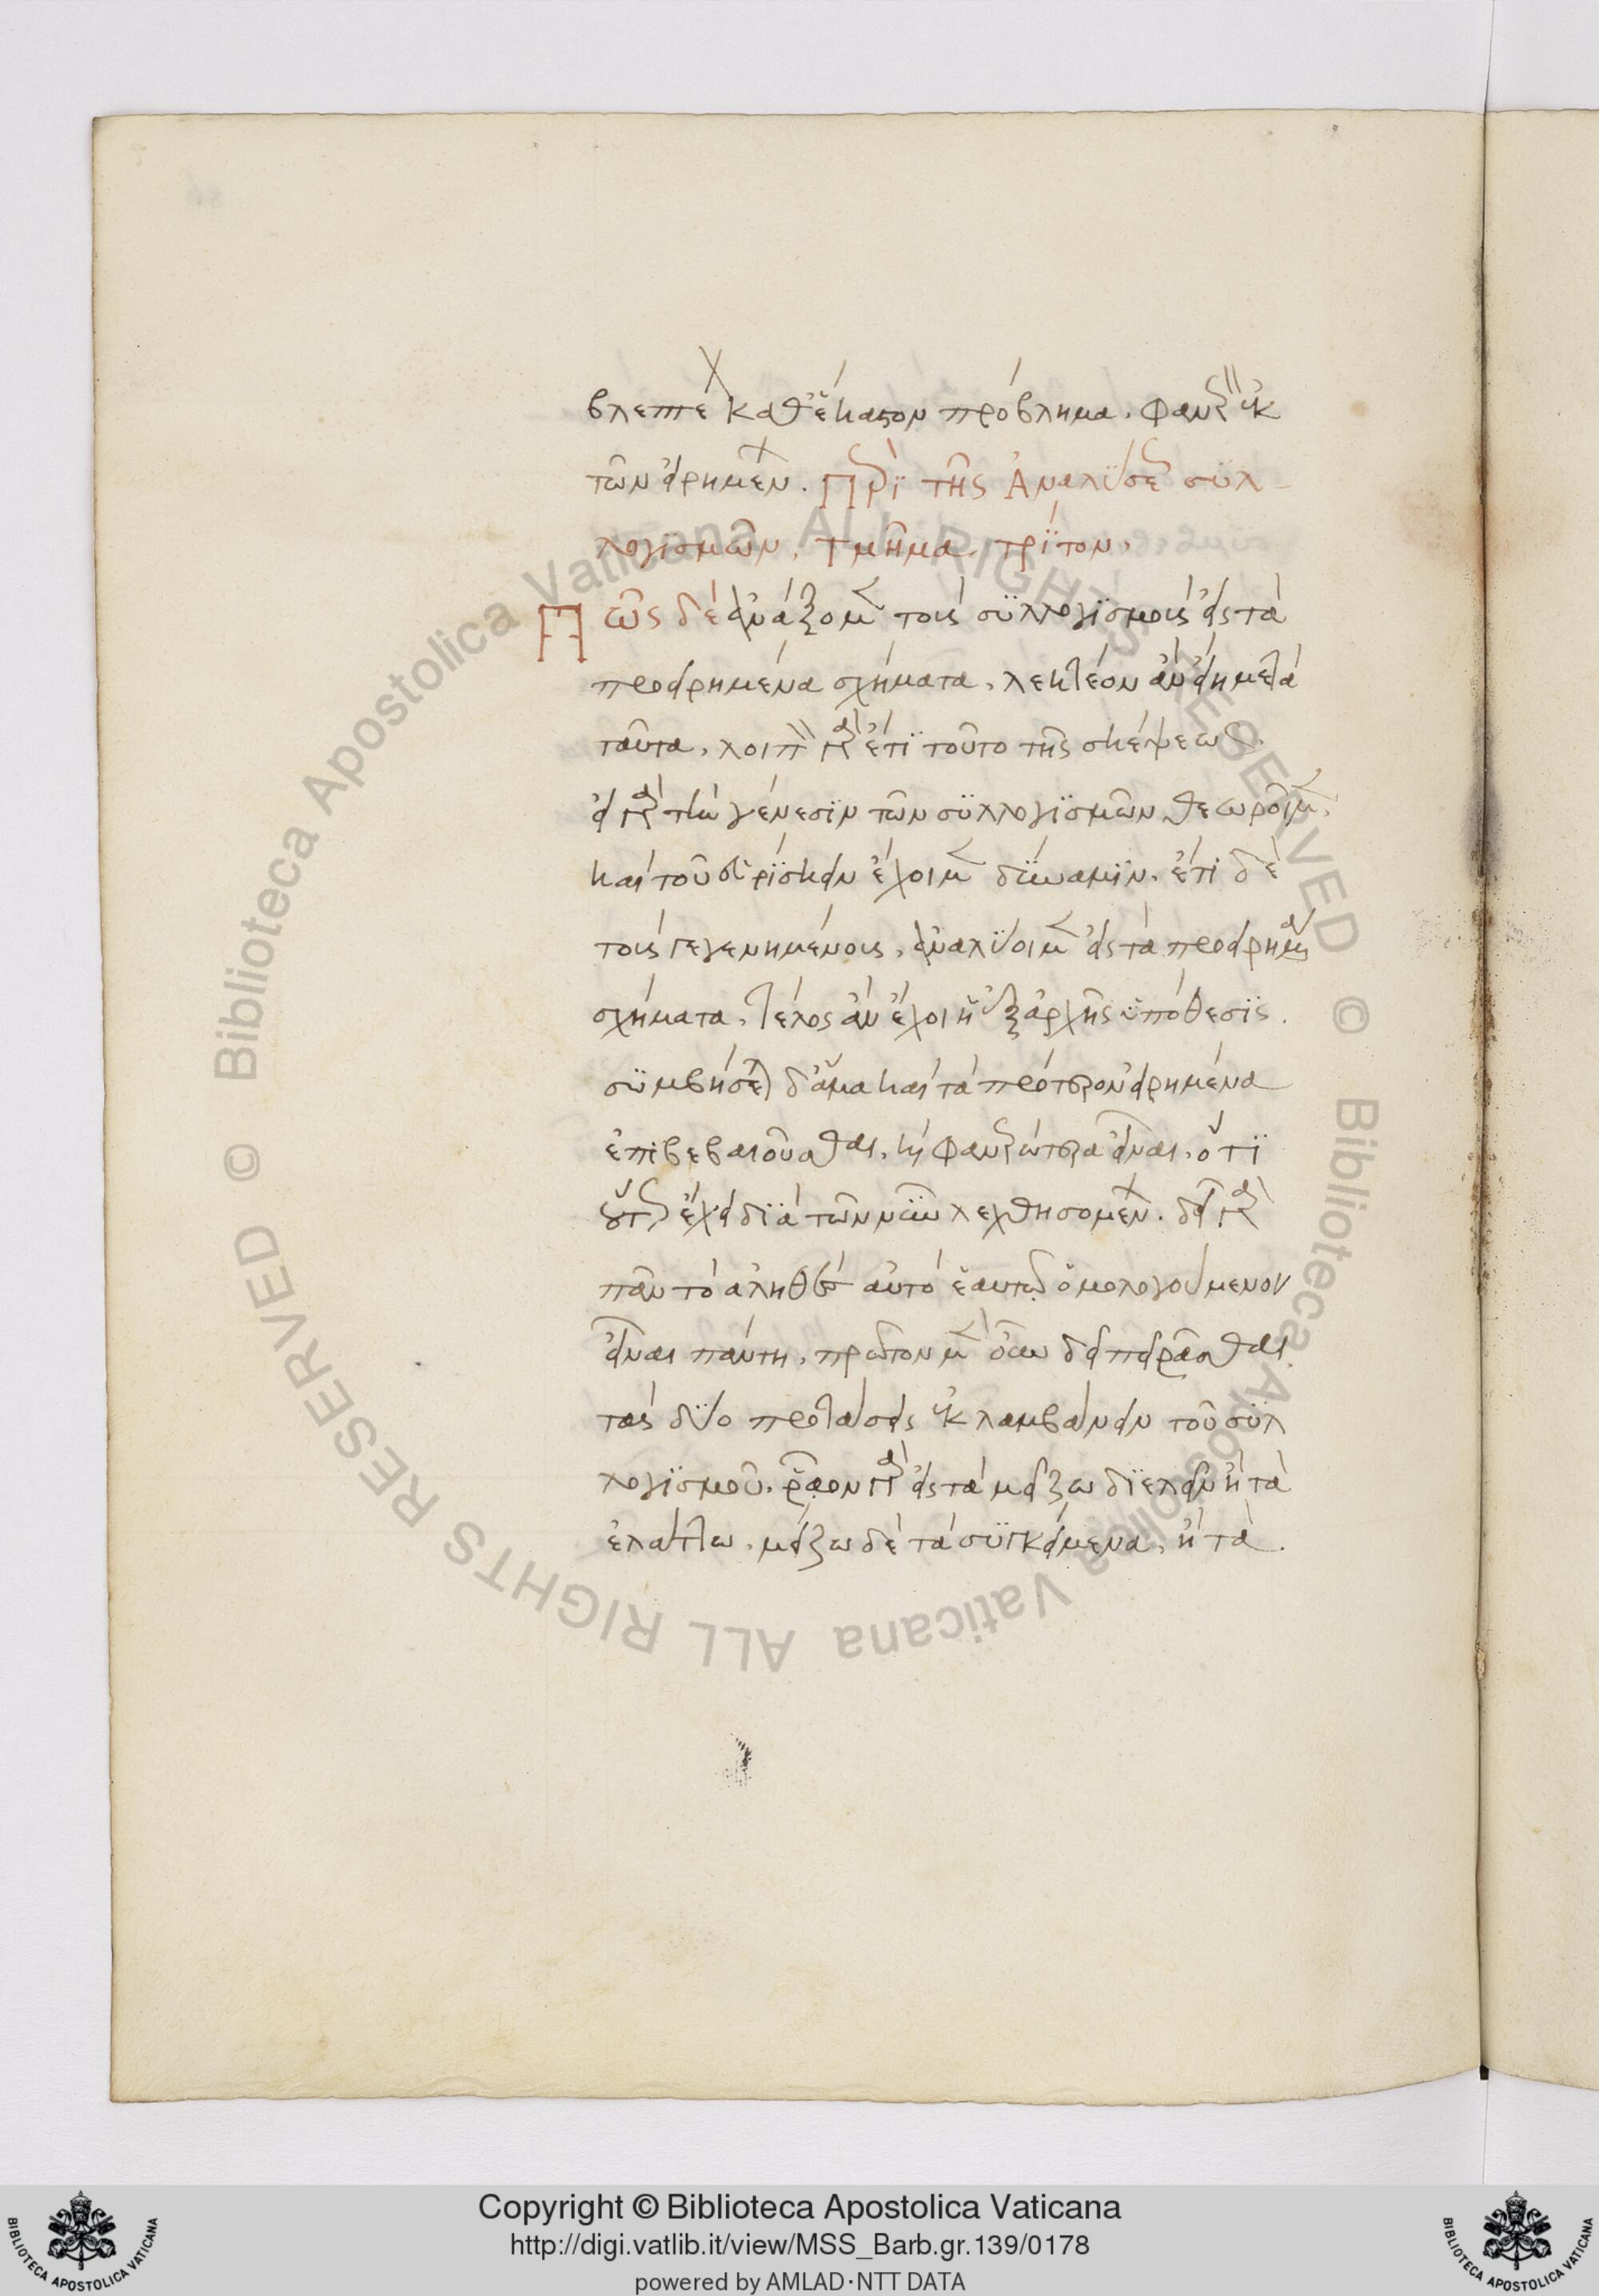 βλεπτέον καθ' ἕκαστον πρόβλημα, φανερὸν ἐκ
τῶν εἰρημένων. Περὶ τῆς Ἀναλύσεως συλ-
λογισμῶν, τμῆμα τρίτον.
Πῶς δὲ ἀνάξομεν τοὺς συλλογισμοὺς εἰς τὰ
προειρημένα σχήματα, λεκτέον ἂν εἴη μετὰ
ταῦτα, λοιπὸν γὰρ ἔτι τοῦτο τῆς σκέψεως.
εἰ γὰρ τὴν γένεσιν τῶν συλλογισμῶν θεωροῖμεν,
καὶ τοῦ εὑρίσκειν ἔχοιμεν δύναμιν, ἔτι δὲ
τοὺς γεγενημένους, ἀναλύοιμεν εἰς τὰ προειρημένα
σχήματα, τέλος ἂν ἔχοι ἡ ἐξ ἀρχῆς ὑπόθεσις.
συμβήσεται δ' ἅμα καὶ τὰ πρότερον εἰρημένα
ἐπιβεβαιοῦσθαι, καὶ φανερώτερα εἶναι, ὅτι
οὕτως ἔχει διὰ τῶν νῦν λεχθησομένων. δεῖ γὰρ
πᾶν τὸ ἀληθὲς αὐτὸ ἑαυτῷ ὁμολογούμενον
εἶναι πάντη, πρῶτον μὲν οὖν δεῖ πειρᾶσθαι
τὰς δύο προτάσεις ἐκλαμβάνειν τοῦ συλ
λογισμοῦ, ῥᾷον γὰρ εἰς τὰ μείζω διελεῖν ἢ τὰ
ἐλάττω, μείζω δὲ τὰ συγκείμενα, ἢ τὰ.
Copyright © Biblioteca Apostolica Vaticana
http://digi.vatlib.it/view/MSS_Barb.gr.139/0178
powered by AMLAD·NTT DATA
© Biblioteca Apostolica Vaticana ALL RIGHTS RESERVED © Biblioteca Apostolica Vaticana ALL RIGHTS RESERVED
BIBLIOTECA APOSTOLICA VATICANA
BIBLIOTECA APOSTOLICA VATICANA